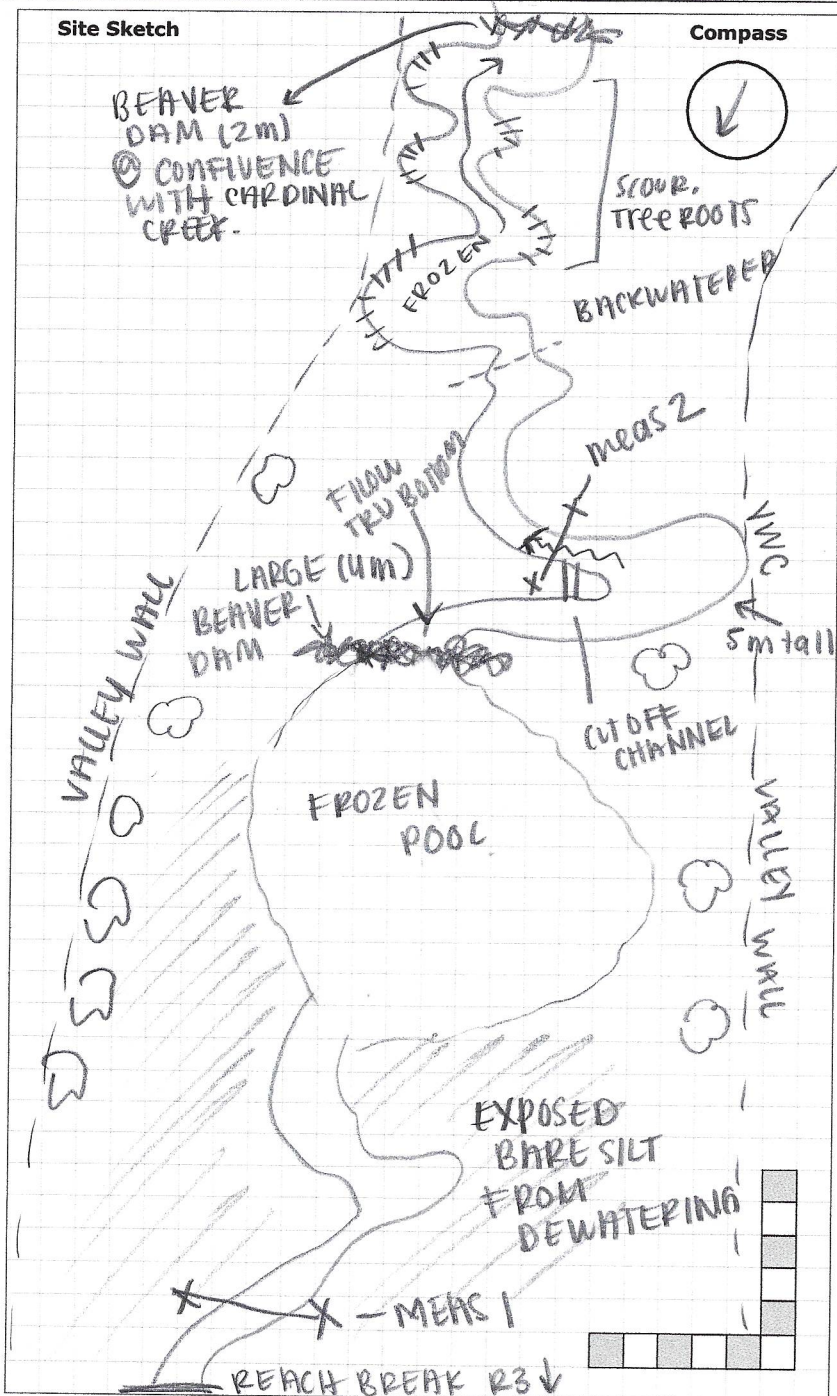 Site Sketch
Compass
BEAVER
DAM (2m)
@ CONFLUENCE
WITH CARDINAL
CREEK.
SCOUR.
Tree ROOTS
FROZEN
BACKWATERED
meas 2
FLOW
TRU BOTTOM
VWC
5m tall
LARGE (4m)
BEAVER
DAM
VALLEY WALL
CUTOFF
CHANNEL
FROZEN
POOL
VALLEY WALL
EXPOSED
BARE SILT
FROM
DEWATERING
MEAS 1
REACH BREAK R3